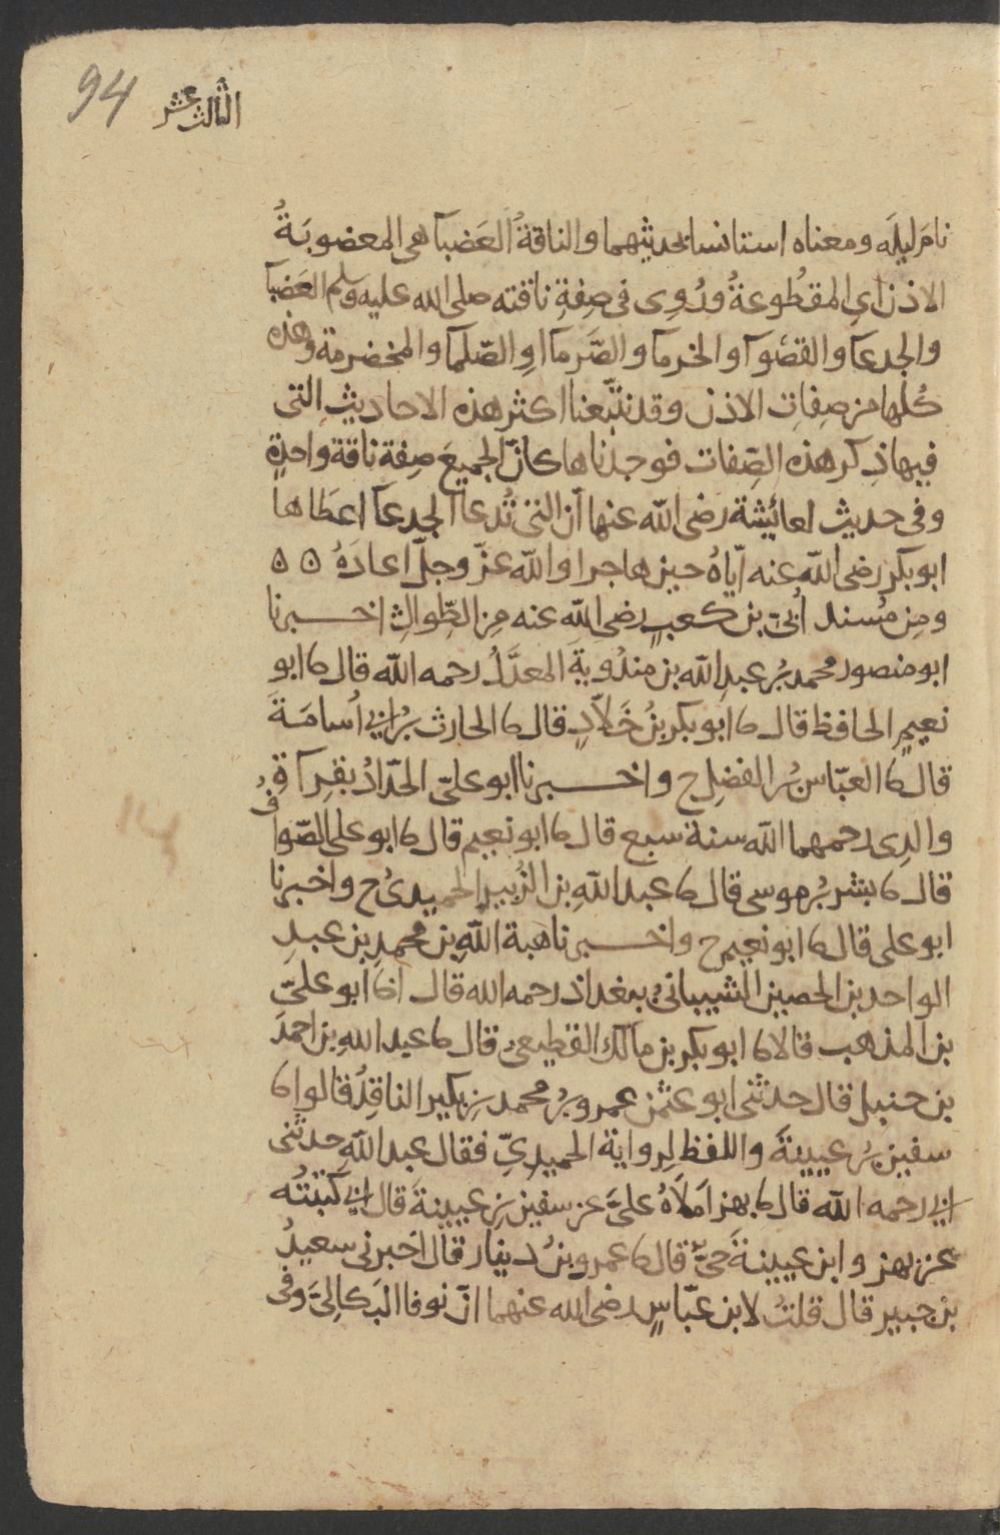 94
الثالث عشر
نامَ ليلَه ومعناه استانسا بحديثهما والناقةُ العَضبآ هى المعضوبَةُ
الاذن اى المقطُوعةُ ورُوِى فى صِفةِ ناقته صلى الله عليه وسلم العَضبآ
والجدعآ والقصْوآ والخرمآ والصَّرمآ او الصّلمآ والمخضرمة وهذه
كُلها من صِفاتِ الاذن وقد تتبّعنا اكثر هذه الاحاديثِ التى
فيها ذِكر هذه الصِّفات فوجدناها كانّ الجميعَ صِفة ناقة واحدةٍ
وفى حديث لعائيشة رضى الله عنها اَن التى تُدعا الجدعآ اعطَاها
ابو بكر رضى الله عنه ايّاهُ حين هاجرا والله عزّ وجلّ اعادَهُ ۵ ۵
ومِن مُسند اُبىّ بن كعبٍ رضى الله عنه مِن الطِّوالِ اخـــبرنا
ابو منصور محمد بنُ عبدِ الله بن مندُوية المعدَّلُ رحمه الله قال ثا ابو
نعيمٍ الحافظ قال ثا ابو بكر بنُ خَلّادٍ قال ثا الحارث بنُ ابى اُسامَةَ
قال ثا العبّاس بنُ الفضلِ ح واخـــبرنا ابو علىّ الحدّادُ بقرآةِ
والدِى رحمهما الله سنة سبع قال ثا ابو نعيم قال ثا ابو على الصّوافُ
قال ثا بشر بنُ موسى قال ثا عبد اللهِ بن الزُبير الحميدىُ ح واخبرنا
ابو على قال ثا ابو نعيم ح واخـــبرنا هبة اللهِ بن محمدِ بن عبدِ
الواحد بن الحصين الشيبانىُ ببغداذ رحمه الله قال انا ابو علىّ
بن المذهب قالا ثا ابو بكر بن مالك القطيعىُ قال ثا عبد اللهِ بن احمدَ
بن حنبل قال حدثنى ابو عثمن عمرو بنُ محمد بنِ بكير الناقِدُ قالوا ثا
سفين بنُ عيينةَ واللفظ لِرواية الحميدِىِّ فقال عبد اللهِ حدثنى
ابى رحمه الله قال ثا بهز اَملَاهُ علىَّ عن سفين بنِ عيينةَ قال ابى كتبتُه
عن بهز وابن عيينةَ حىٌّ قال ثا عمرو بنُ دينار قال اخبرنى سعيدُ
بن جبير قال قلتُ لابن عبّاسٍ رضى الله عنهما انّ نوفا البَكالِىَّ وفى